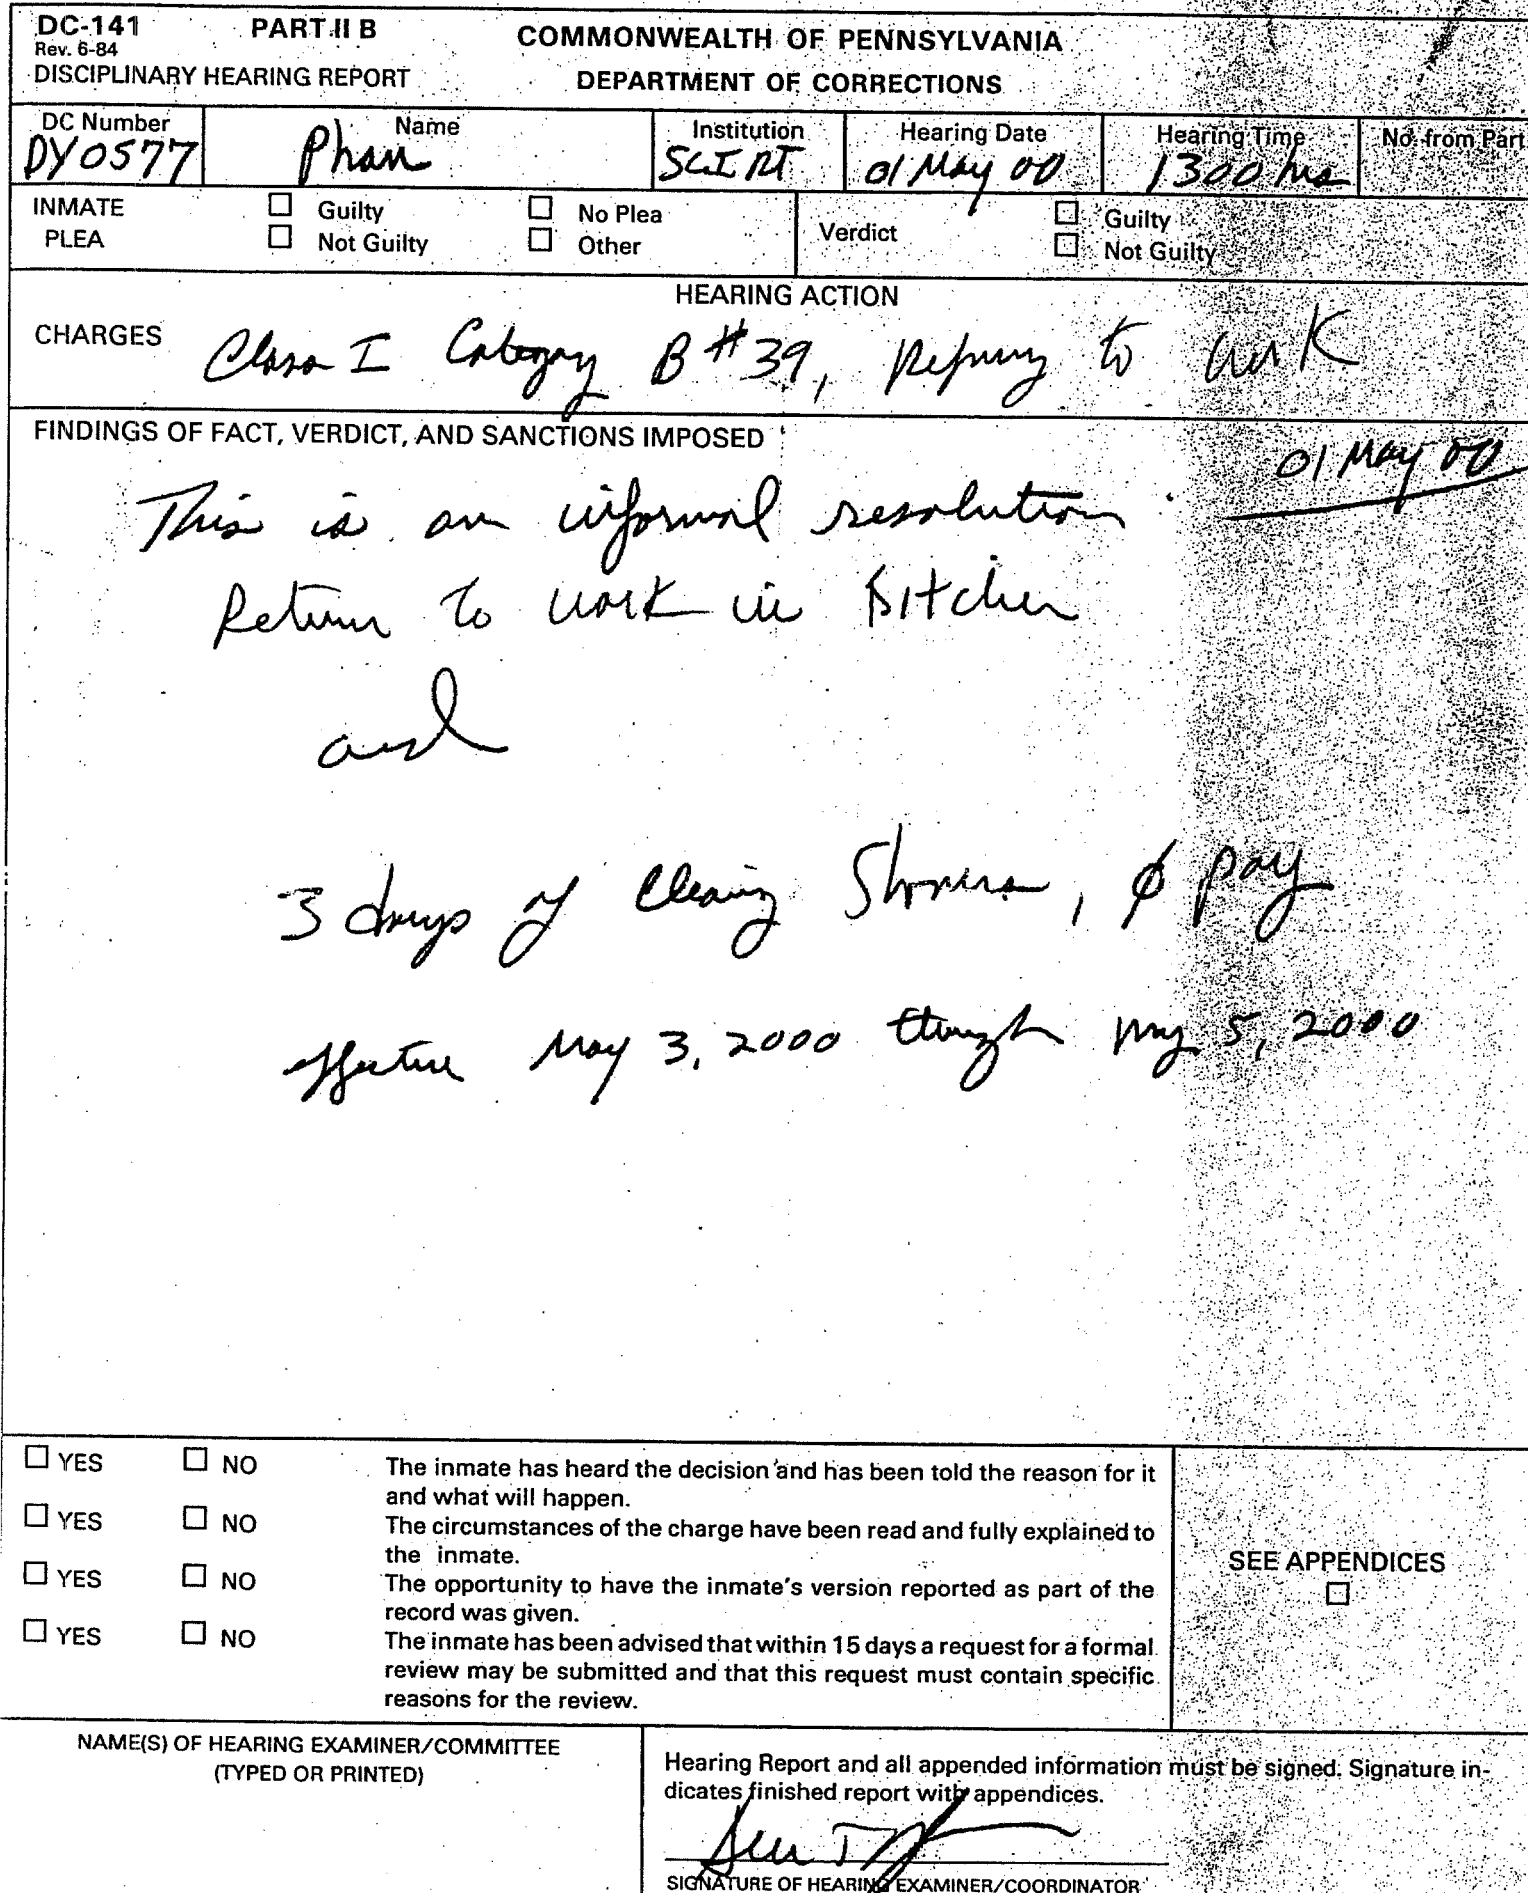 DC-141 PART II B COMMONWEALTH OF PENNSYLVANIA
Rev. 6-84
DISCIPLINARY HEARING REPORT DEPARTMENT OF CORRECTIONS
DC Number Name Institution Hearing Date Hearing Time No. from Part
DY0577 Phan SCI RT 01 May 00 1300 hrs
INMATE ☐ Guilty ☐ No Plea Verdict ☐ Guilty
PLEA ☐ Not Guilty ☐ Other ☐ Not Guilty
HEARING ACTION
CHARGES Class I Category B #39, Refusing to work
FINDINGS OF FACT, VERDICT, AND SANCTIONS IMPOSED
01 May 00
This is an informal resolution
Return to work in Kitchen
and
3 days of Cleaning Showers, ∅ pay
effective May 3, 2000 through May 5, 2000
☐ YES ☐ NO The inmate has heard the decision and has been told the reason for it
and what will happen.
☐ YES ☐ NO The circumstances of the charge have been read and fully explained to
the inmate.
☐ YES ☐ NO The opportunity to have the inmate's version reported as part of the
record was given.
☐ YES ☐ NO The inmate has been advised that within 15 days a request for a formal
review may be submitted and that this request must contain specific
reasons for the review.
SEE APPENDICES
☐
NAME(S) OF HEARING EXAMINER/COMMITTEE
(TYPED OR PRINTED)
Hearing Report and all appended information must be signed. Signature in-
dicates finished report with appendices.
SIGNATURE OF HEARING EXAMINER/COORDINATOR